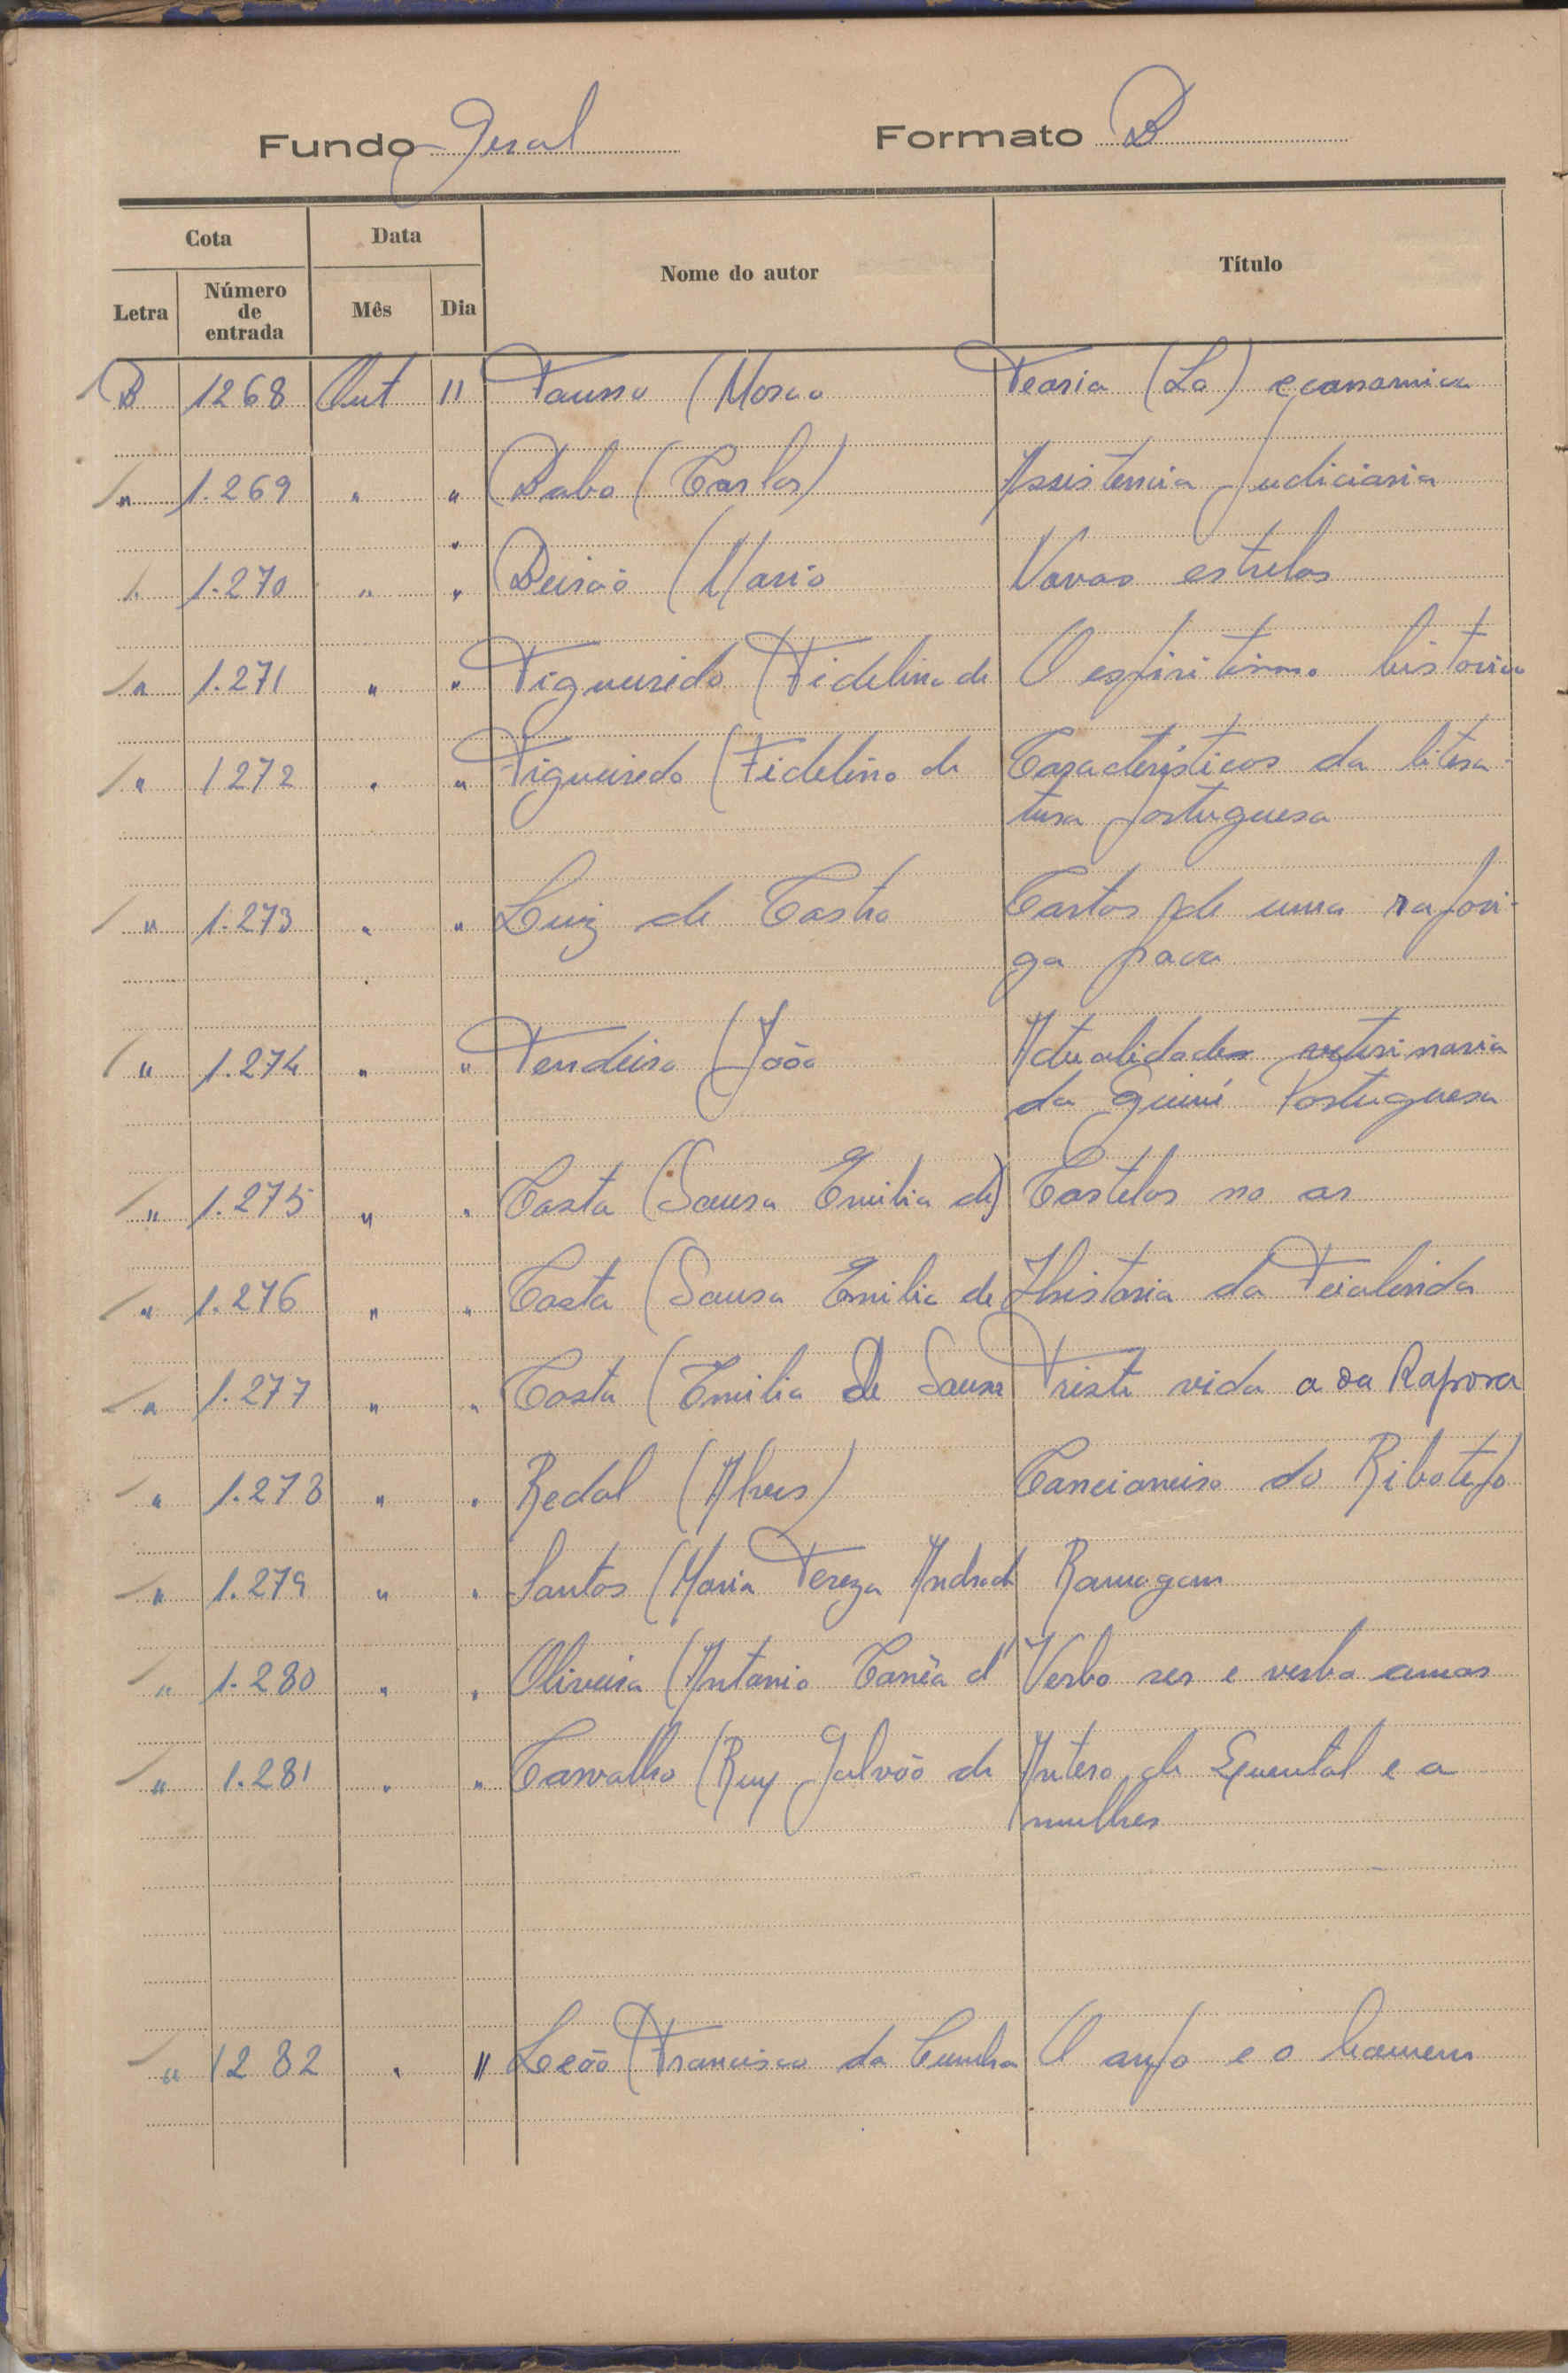 Fundo Geral Formato B
Cota Data Nome do autor Título
Letra Número de entrada Mês Dia
B 1268 Out 11 Fauno (Mosco Teoria (La) economica
" 1.269 " " Babo (Carlos) Assistencia Judiciaria
" 1.270 " " Beirão (Mario Novas estrelas
" 1.271 " " Figueiredo (Fidelino de O espiritismo historico
" 1272 " " Figueiredo (Fidelino de Caracteristicas da litera-
tura portuguesa
" 1.273 " " Luiz de Castro Cartas de uma rapari-
ga parva
" 1.274 " " Tendeiro (João Actualidades veterinaria
da Guiné Portuguesa
" 1.275 " " Costa (Sousa Emilia de) Castelos no ar
" 1.276 " " Costa (Sousa Emilia de Historia da
" 1.277 " " Costa (Emilia de Sousa Triste vida a da Raposa
" 1.278 " " Redol (Alves) Cancioneiro do Ribatejo
" 1.279 " " Santos (Maria Tereza Andrade Ramagem
" 1.280 " " Oliveira (Antonio Corrêa d' Verbo ser e verbo amar
" 1.281 " " Carvalho (Ruy Galvão de Antero de Quental e a
mulher
" 1282 " " Leão (Francisco da Cunha O anjo e o homem